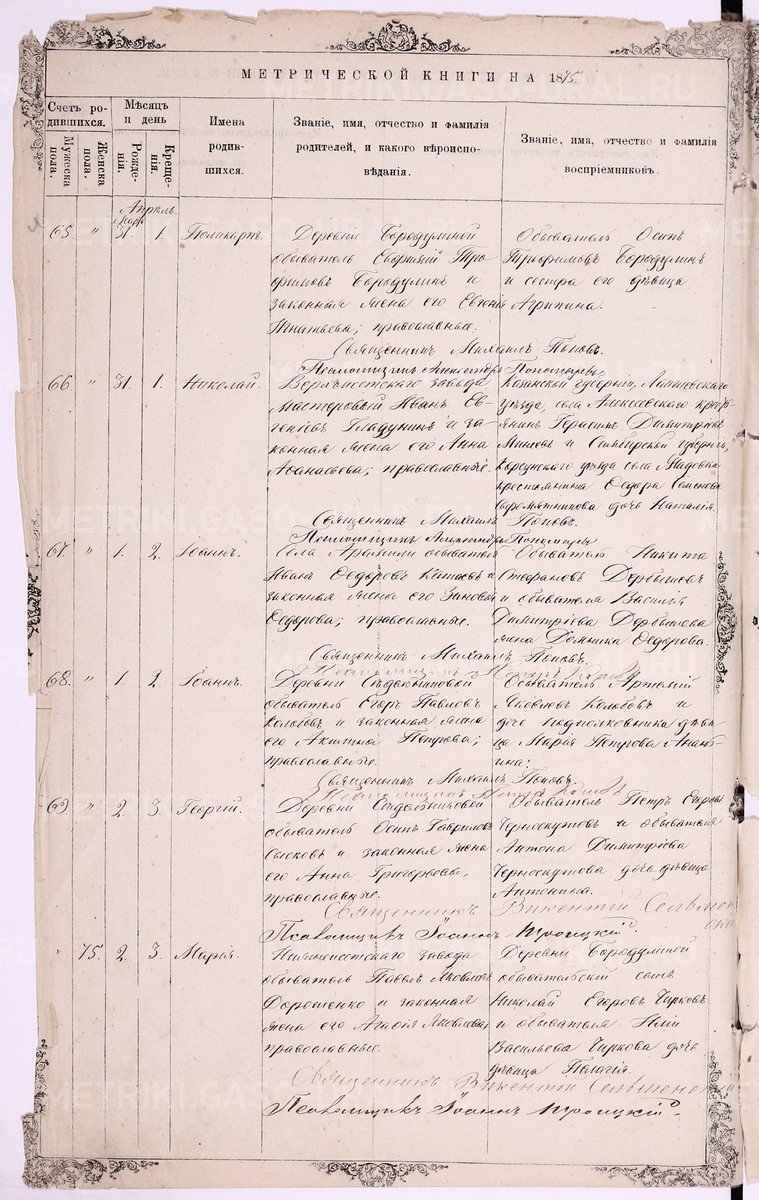 МЕТРИЧЕСКОЙ КНИГИ НА 1875
Счетъ родившихся.
Мужеска пола.
Женска пола.
Мѣсяцъ и день
Рожденія.
Крещенія.
Имена родившихся.
Званіе, имя, отчество и фамилія родителей, и какого вѣроисповѣданія.
Званіе, имя, отчество и фамилія воспріемниковъ.
Апрѣль.
Март.
65. " 31. 1. Поликарпъ.
Деревни Бородулиной
обыватель Евфимій Тро
фимовъ Бородулинъ и
законная жена его Евгенія
Игнатьева; православные.
Обыватель Осипъ
Трофимовъ Бородулинъ
и сестра его дѣвица
Агрипина.
Священникъ Михаилъ Поповъ.
Псаломщикъ Александръ Пономаревъ
66. " 31. 1. Николай.
Верхъисетскаго завода
мастеровый Иванъ Ев-
геніевъ Гладунинъ и за-
конная жена его Анна
Аѳанасьева; православные.
Казанской губерніи, Лаишевскаго
уѣзда, села Алексѣевскаго кресть-
янинъ Герасимъ Димитріевъ
и Симбирской губерніи,
Корсунскаго уѣзда села
крестьянина Ѳедора Семенова
Сыромятникова дочь Наталія.
Священникъ Михаилъ Поповъ.
Псаломщикъ Александръ Пономаревъ
67. " 1. 2. Іоаннъ.
Села Арамили обыватель
Иванъ Ѳедоровъ Китаевъ и
законная жена его Зиновія
Ѳедорова; православные.
Обыватель Никита
Стефановъ Дербышевъ
и обывателя Василія
Димитріева Дербышева
жена Домника Ѳедорова.
Священникъ Михаилъ Поповъ.
68. " 1. 2. Іоаннъ.
Деревни Сѣдельниковой
обыватель Егоръ Павловъ
Колобовъ и законная жена
его Акилина Петрова;
православные.
Обыватель Артемій
Яковлевъ Колобовъ и
дочь подполковника дѣви-
ца Марія Петрова Анань-
ина.
Священникъ Михаилъ Поповъ.
69. " 2. 3. Георгій.
Деревни Сѣдельниковой
обыватель Осипъ Гавриловъ
Сысковъ и законная жена
его Анна Григорьева,
православные.
Обыватель Петръ Егоровъ
Черноскутовъ и обывателя
Антона Димитріева
Черноскутова дочь дѣвица
Антонина.
Священникъ Викентій
Псаломщикъ Іоаннъ Троицкій.
" 75. 2. 3. Марія.
Нижнеисетскаго завода
обыватель Павелъ Яковлевъ
Дорошенко и законная
жена его Агафія Яковлева,
православные.
Деревни Бородулиной
обывательскій сынъ
Николай Егоровъ Чирковъ
и обывателя Иліи
Васильева Чиркова дочь
дѣвица Пелагія.
Священникъ Викентій
Псаломщикъ Іоаннъ Троицкій.